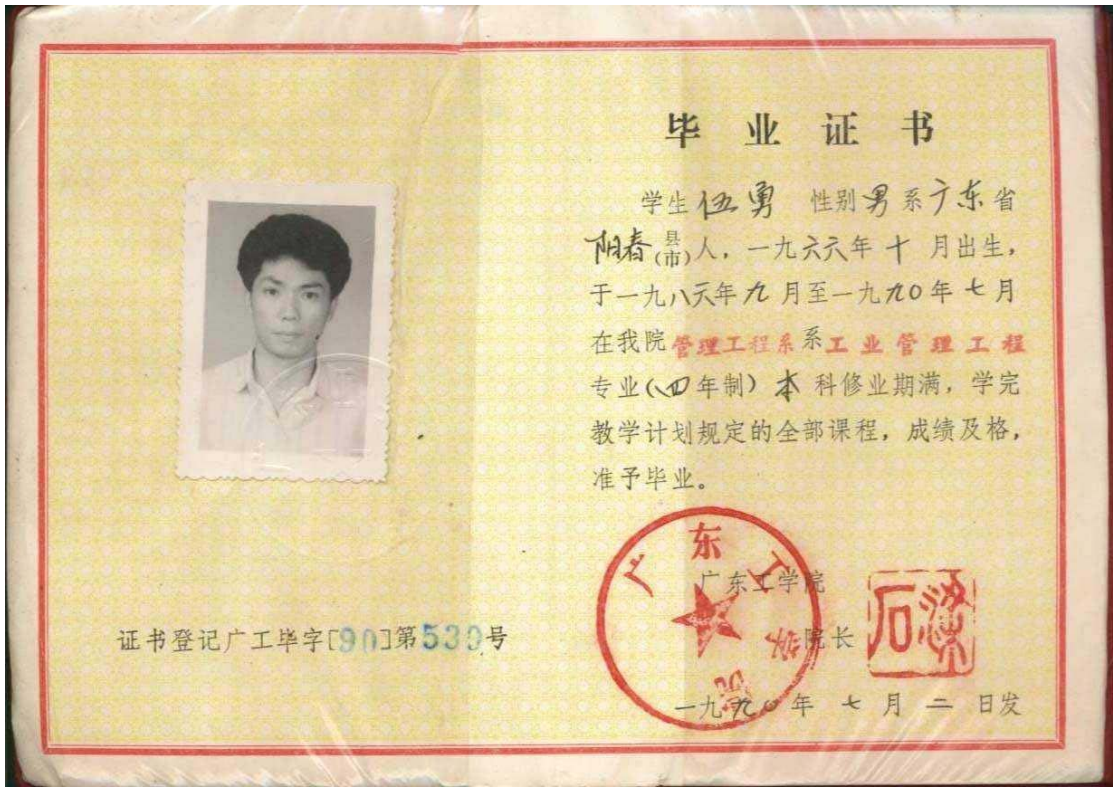 毕业证书
学生伍勇 性别男系广东省
阳春县(市)人，一九六六年十月出生，
于一九八六年九月至一九九0年七月
在我院管理工程系系工业管理工程
专业(四年制)本科修业期满，学完
教学计划规定的全部课程，成绩及格，
准予毕业。
广东工学院
广东工学院
院长
一九九0年七月二日发
证书登记广工毕字[90]第539号